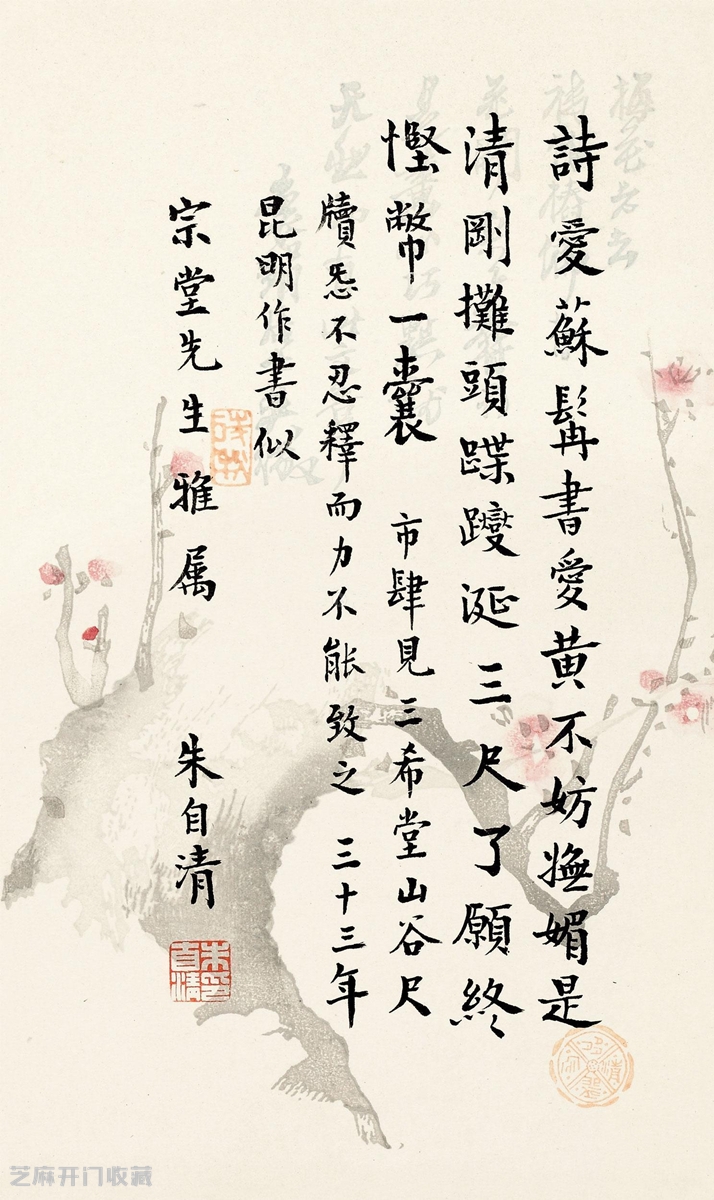 詩愛蘇髯書愛黄不妨嫵媚是
清剛攤頭蹀躞涎三尺了願終
慳幣一囊 市肆見三希堂山谷尺
牘忢不忍釋而力不能致之 三十三年
昆明作書似
宗堂先生雅属 朱自清
朱自清印
芝麻开门收藏